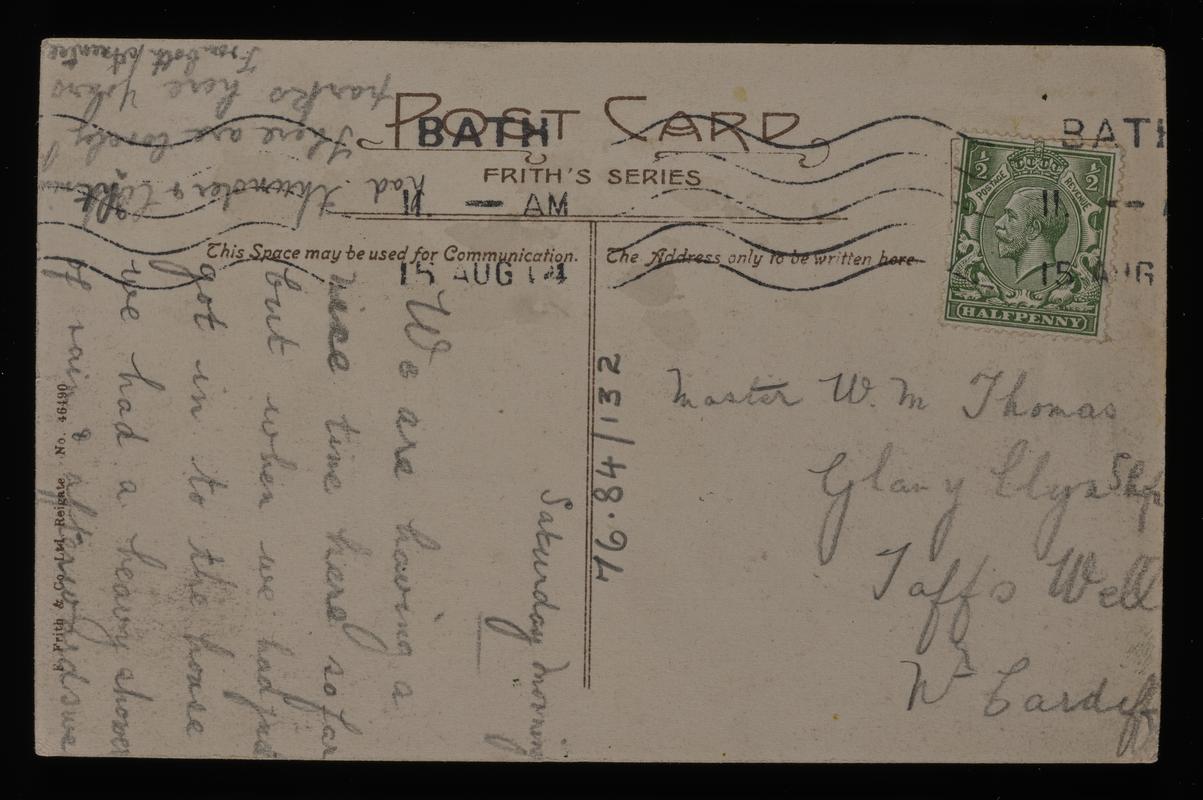 POST CARD
FRITH'S SERIES
This Space may be used for Communication.
The Address only to be written here
BATH
11 — AM
15 AUG 14
BATH
11 —
15 AUG
½ ½
POSTAGE REVENUE
HALFPENNY
Saturday Morning
We are having a
nice time here so far
but when we had jus
got in to the house
we had a heavy shower
of rain & afterwards we
had thunder & light
There are lovely
parks here
From both
Master W. M Thomas
Glan y Shop
Taffs Well
Nr Cardiff
76.48/132
F. Frith & Co. Ltd. Reigate No. 46490